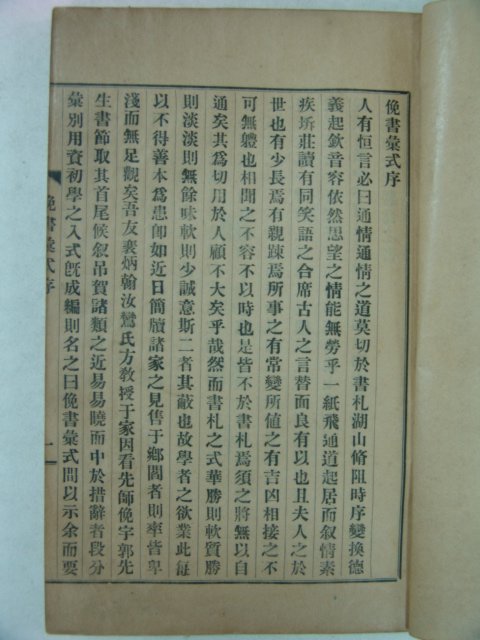 俛書彙式序
人有恒言必曰通情通情之道莫切於書札湖山脩阻時序變換德
義起欽音容依然思望之情能無勞乎一紙飛通道起居而叙情素
疾坼莊讀有同笑語之合席古人之言替面良有以也且夫人之於
世也有少長焉有親踈焉所事之有常變所値之有吉凶相接之不
可無軆也相聞之不容不以時也是皆不於書札焉須之將無以自
通矣其爲切用於人顧不大矣乎哉然而書札之式華勝則軟質勝
則淡淡則無餘味軟則少誠意斯二者其蔽也故學者之欲業此每
以不得善本爲患卽如近日簡牘諸家之見售于鄕閭者則率皆卑
淺而無足觀矣吾友裵炳翰汝鸞氏方教授于家因看先師俛宇郭先
生書節取其首尾候叙吊賀諸類之近易易曉而中於措辭者段分
彙別用資初學之入式旣成編則名之曰俛書彙式間以示余而要
俛書彙式序
一